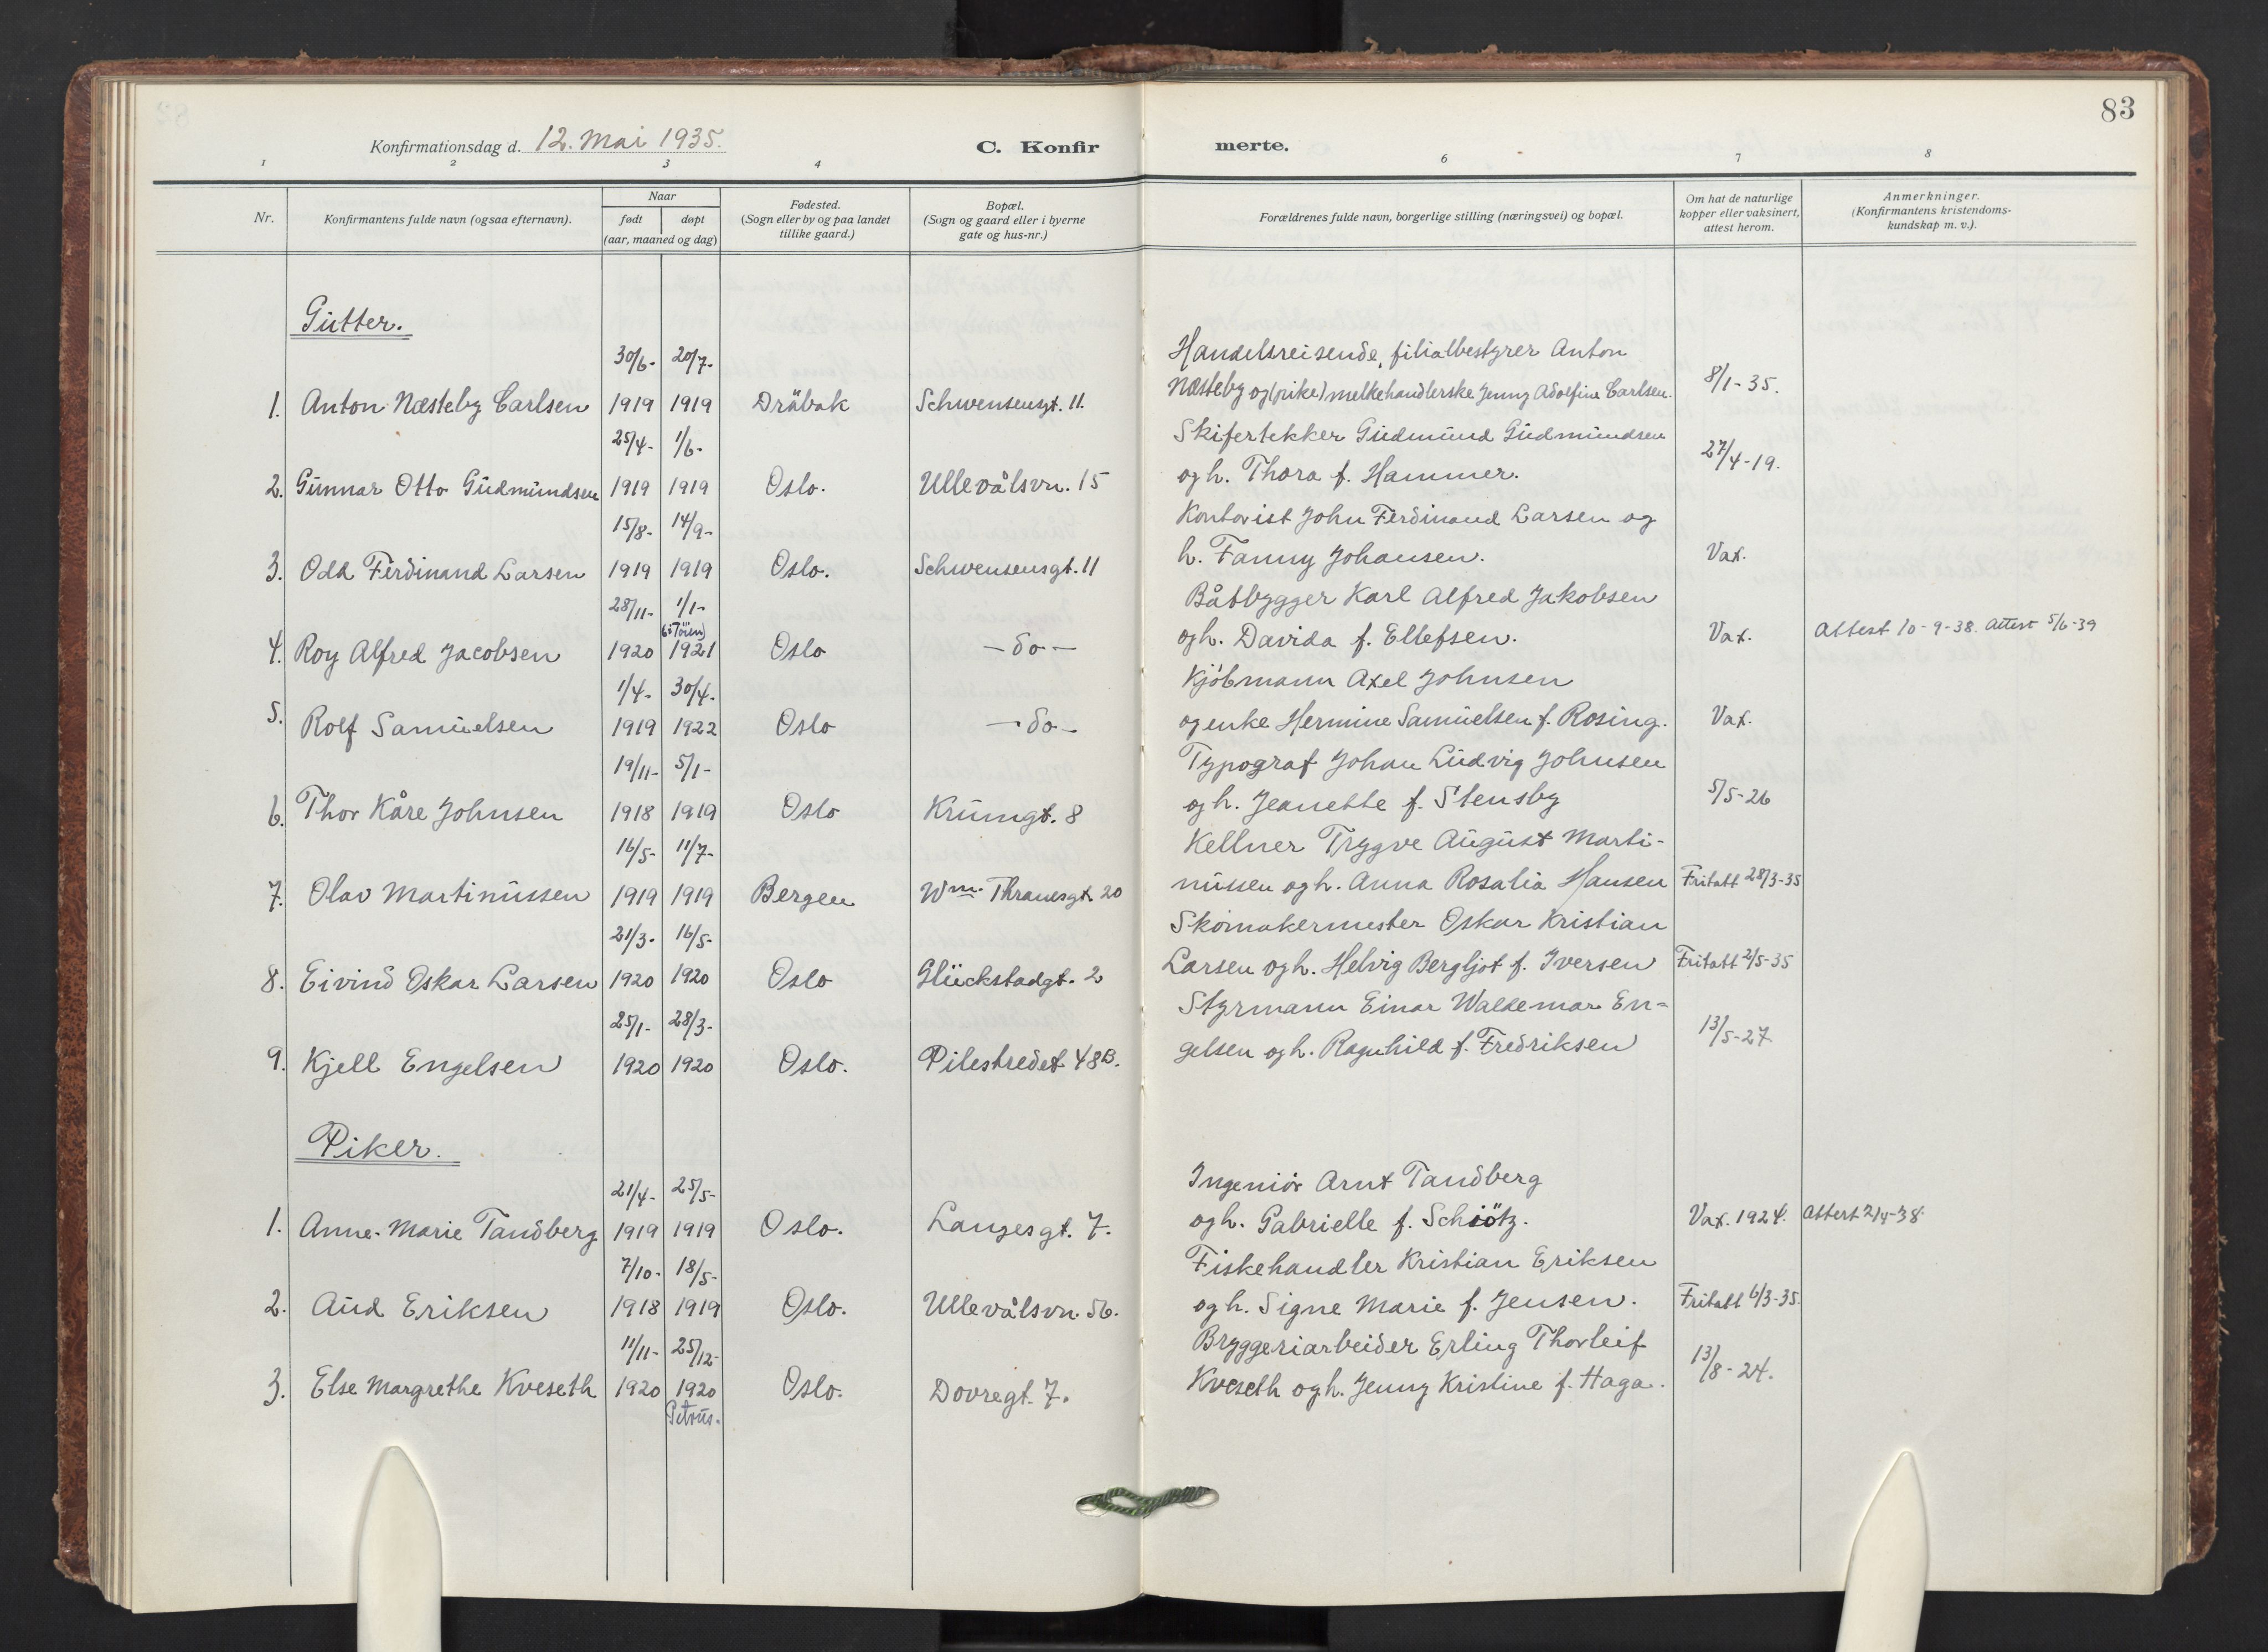 83
Konfirmationsdag d. 12. Mai 1935.
C. Konfir merte.
1 2 3 4 6 7 8
Nr.
Konfirmantens fulde navn (ogsaa efternavn).
Naar
født døpt
(aar, maaned og dag)
Fødested.
(Sogn eller by og paa landet
tillike gaard.)
Bopæl.
(Sogn og gaard eller i byerne
gate og hus-nr.)
Forældrenes fulde navn, borgerlige stilling (næringsvei) og bopæl.
Om hat de naturlige
kopper eller vaksinert,
attest herom.
Anmerkninger.
(Konfirmantens kristendoms-
kundskap m. v.).
Gutter.
30/6- 20/7- Handelsreisende, filialbestyrer Anton
1. Anton Næsteby Carlsen 1919 1919 Dråbak Schwensensgt. 11. Næsteby og (pike) melkehandlerske Jenny Adolfine Carlsen. 8/1-35.
25/4- 1/6- Skifertekker Gudmund Gudmundsen
2. Gunnar Otto Gudmundsen 1919 1919 Oslo. Ullevålsvn. 15 og h. Thora f. Hammer. 27/4-19.
15/8- 14/9- Kontorist John Ferdinand Larsen og
3. Odd Ferdinand Larsen 1919 1919 Oslo. Schwensensgt. 11 h. Fanny Johansen. Vax.
28/11- 1/1- Båtbygger Karl Alfred Jakobsen
(i Töien)
4. Roy Alfred Jacobsen 1920 1921 Oslo - do - og h. Davida f. Ellefsen. Vax. Attest 10-9-38. Attest 5/6-39
1/4- 30/4- Kjöbmann Axel Johnsen
5. Rolf Samuelsen 1919 1922 Oslo - do - og enke Hermine Samuelsen f. Rosing. Vax.
19/11- 5/1- Typograf Johan Ludvig Johnsen
6. Thor Kåre Johnsen 1918 1919 Oslo Krumgt. 8 og h. Jeanette f. Stensby 5/5-26
16/5- 11/7- Kellner Trygve August Marti-
7. Olav Martinussen 1919 1919 Bergen Wm. Thranesgt. 20 nussen og h. Anna Rosalia Hansen Fritatt 28/3-35
21/3- 16/5- Skomakermester Oskar Kristian
8. Eivind Oskar Larsen 1920 1920 Oslo Glückstadgt. 2 Larsen og h. Helvig Bergljot f. Iversen Fritatt 2/5-35
25/1- 28/3- Styrmann Einar Waldemar En=
9. Kjell Engelsen 1920 1920 Oslo. Pilestredet 48B. gelsen og h. Ragnhild f. Fredriksen 13/5-27
Piker.
21/4- 25/5- Ingeniör Arnt Tandberg
1. Anne-Marie Tandberg 1919 1919 Oslo. Langesgt. 7. og h. Gabrielle f. Schiötz. Vax. 1924. Attest 2/4-38
7/10- 18/5- Fiskehandler Kristian Eriksen
2. Aud Eriksen 1918 1919 Oslo. Ullevålsvn. 56. og h. Signe Marie f. Jensen. Fritatt 6/3-35.
11/11- 25/12- Bryggeriarbeider Erling Thorleif
3. Else Margrethe Kveseth 1920 1920 Oslo. Dovregt. 7. Kveseth og h. Jenny Kristine f. Haga. 13/8-24.
Petrus.